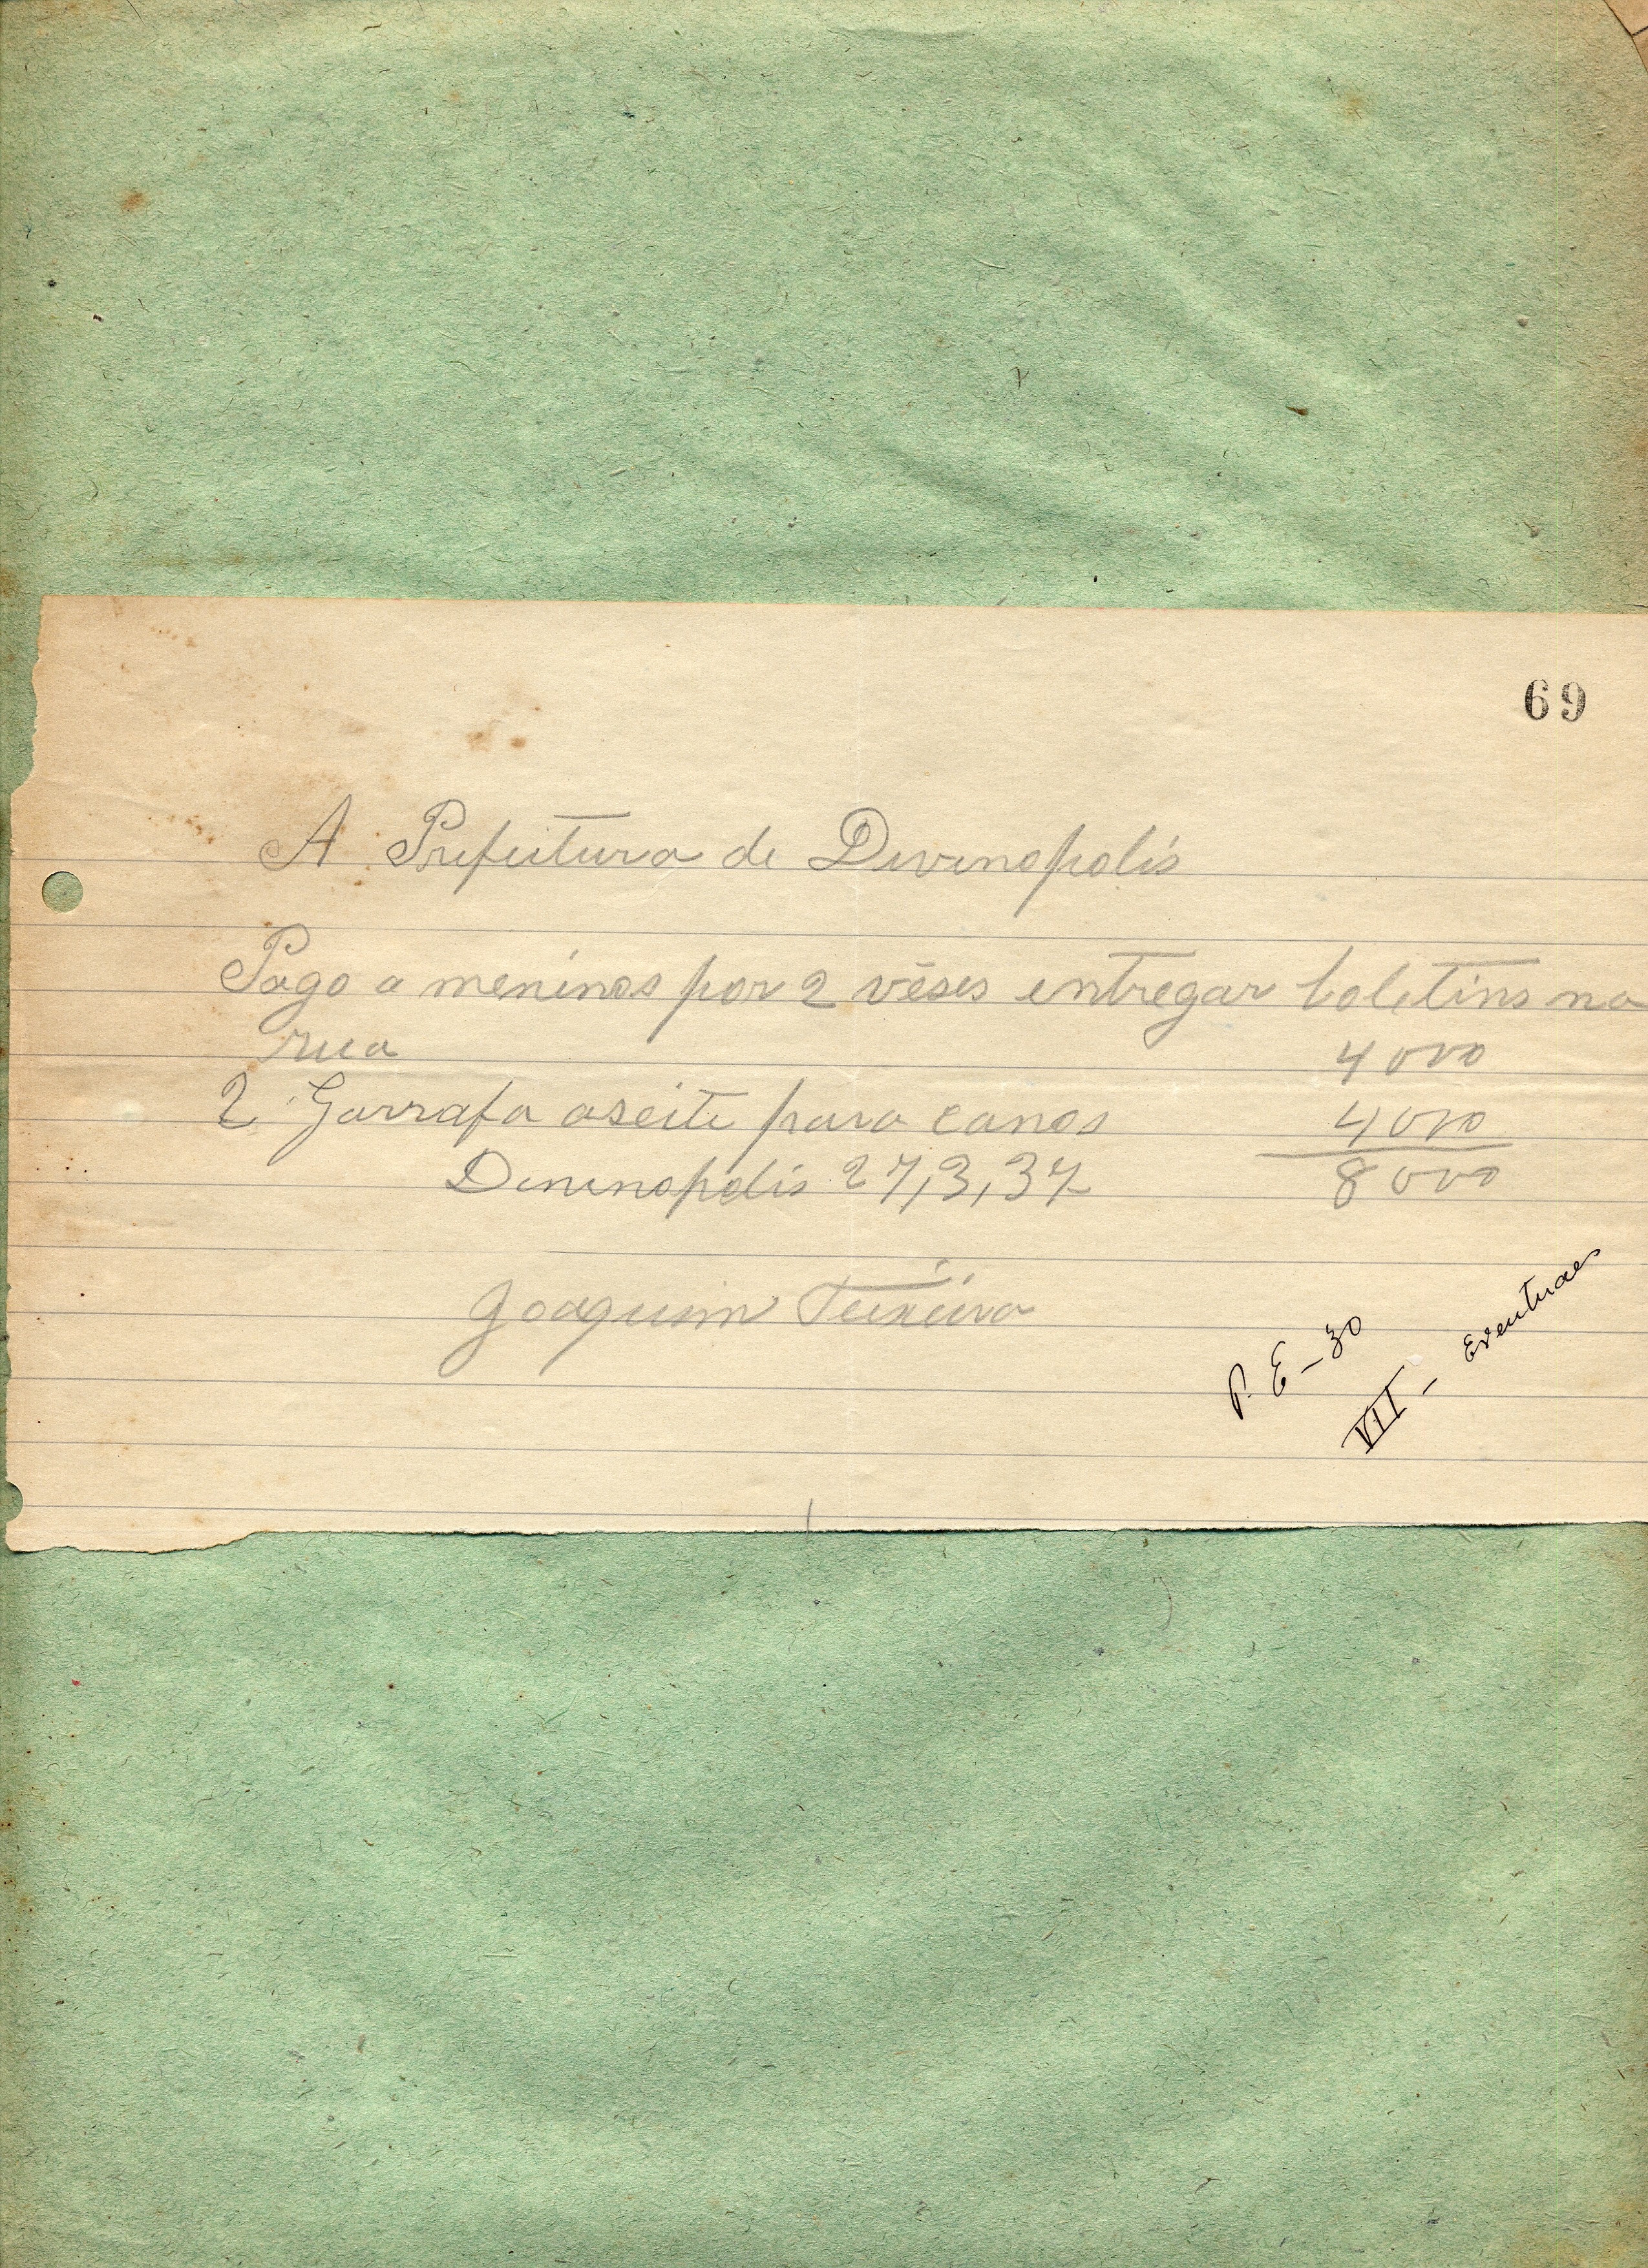 69
A Prefeitura de Divinopolis
Pago a meninos por 2 vêses entregar boletins na
rua 4000
2 Garrafa aseite para canos 4000
Divinopolis 27,3,37 8000
Joaquim Teixeira
P. E - 30
VII - Eventuaes